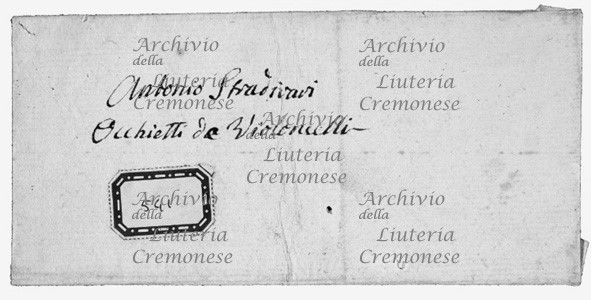 Archivio
della
Liuteria
Cremonese
Archivio
della
Liuteria
Cremonese
Antonio Stradivari
Occhietti de Violoncelli
Archivio
della
Liuteria
Cremonese
Archivio
della
Liuteria
Cremonese
Archivio
della
Liuteria
Cremonese